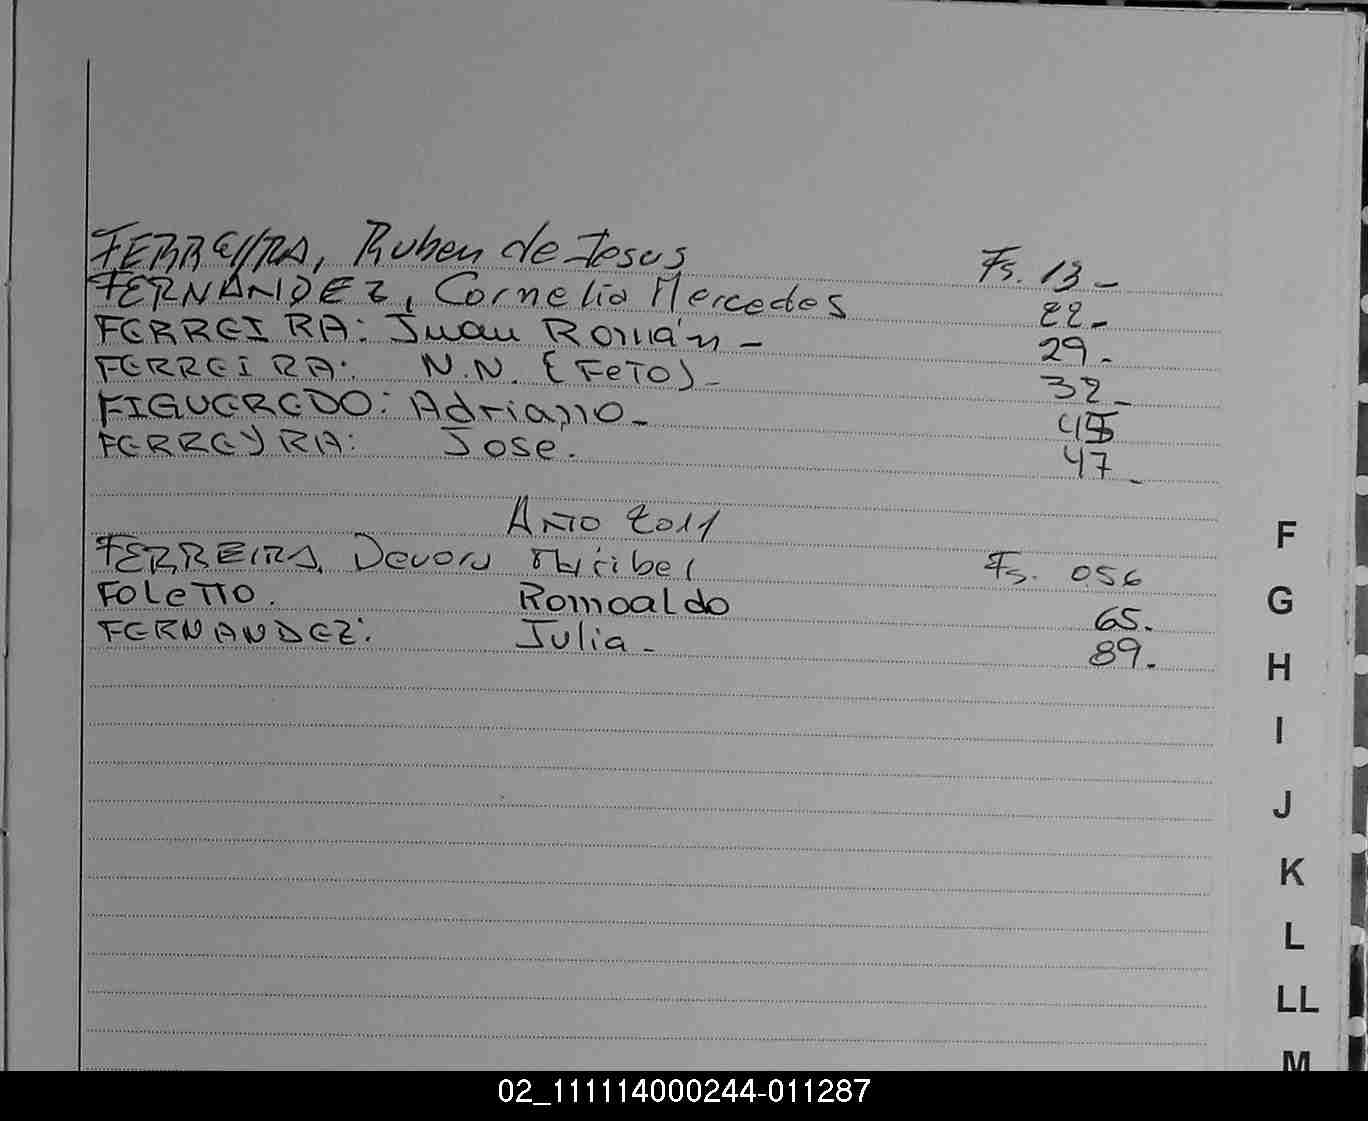 FERREIRA, Ruben de Jesus Fs. 13-
FERNANDEZ, Cornelia Mercedes 22-
FERREIRA: Juan Román - 29-
FERREIRA: N.N. (FeTO)- 32-
FIGUEREDO: Adriano-
FERREYRA: Jose. 47-
AÑO 2011
FERREIRA, Devora Maribel Fs. 056
FOLeTTO. Romoaldo 65.
FERNANDEZ: Julia- 89.
F
G
H
I
J
K
L
LL
M
02_111114000244-011287